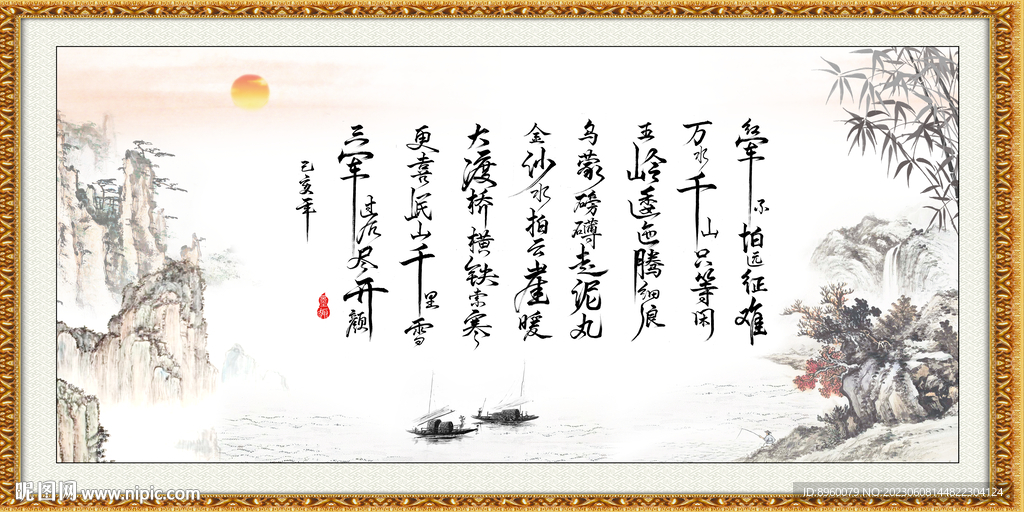 红军不怕远征难
万水千山只等闲
五岭逶迤腾细浪
乌蒙磅礴走泥丸
金沙水拍云崖暖
大渡桥横铁索寒
更喜岷山千里雪
三军过后尽开颜
己亥年
昵图网 www.nipic.com
ID:8960079 NO:20230608144822304124